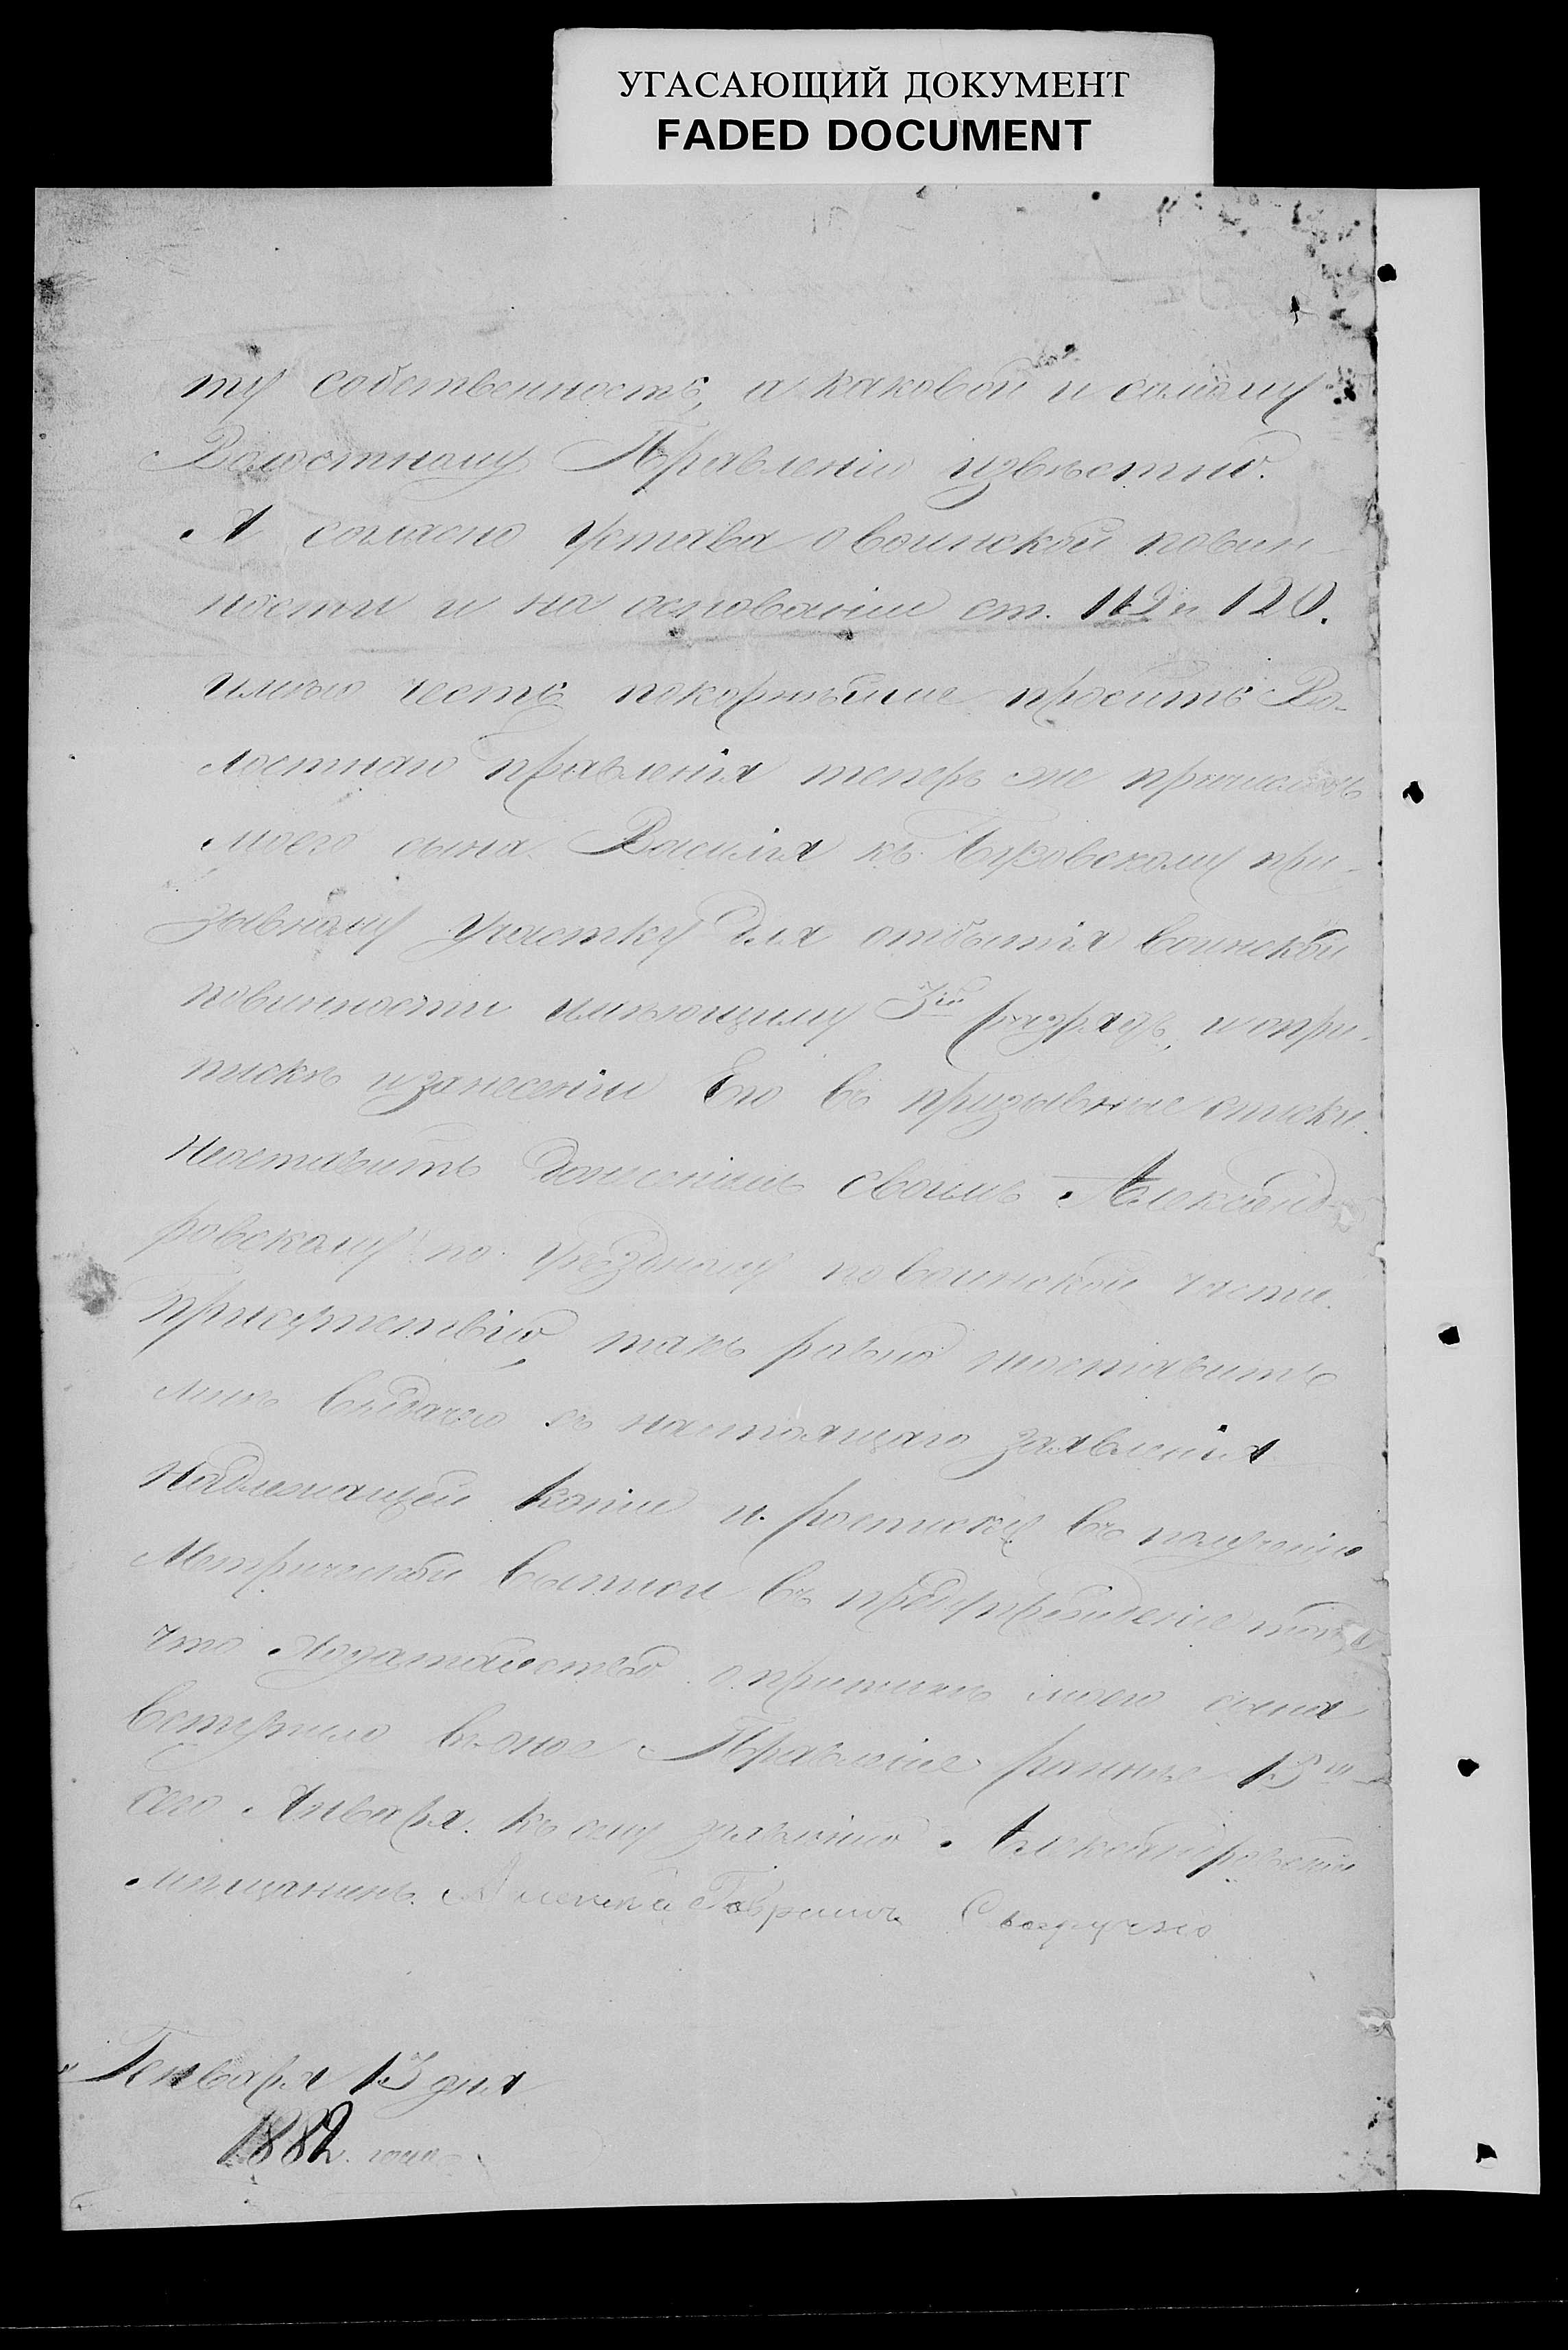 УГАСАЮЩИЙ ДОКУМЕНТ
FADED DOCUMENT
ту собственность, а каковой и самому
Волостному Правленію извѣстно.
А согласно Устава о воинской повин-
ности и на основаніи ст. 119 и 120.
имѣю честь покорнѣйше просить Во-
лостнаго правленія теперь же
моего сына Василія къ призывному
зывному участку для отбытія воинской
повинности имѣющему 3й разрядъ, и о при-
пискѣ и занесеніи Его въ призывные списки.
Неоставить донесеніемъ своимъ Александ-
ровскому по уѣздному по воинской части
Присутствію, такъ равно неоставить
мнѣ выдачею съ настоящаго заявленія
Надлежащей копіи и росписку въ полученіи
Метрической выписи въ предупрежденіе того
что ходатайство о припискѣ моего сына
вступило въ оное Правленіе раннѣе 15го
сего Января. Къ сему заявленію Александровскій
мѣщанинъ Алексѣй
Генваря 13 дня
1882 года